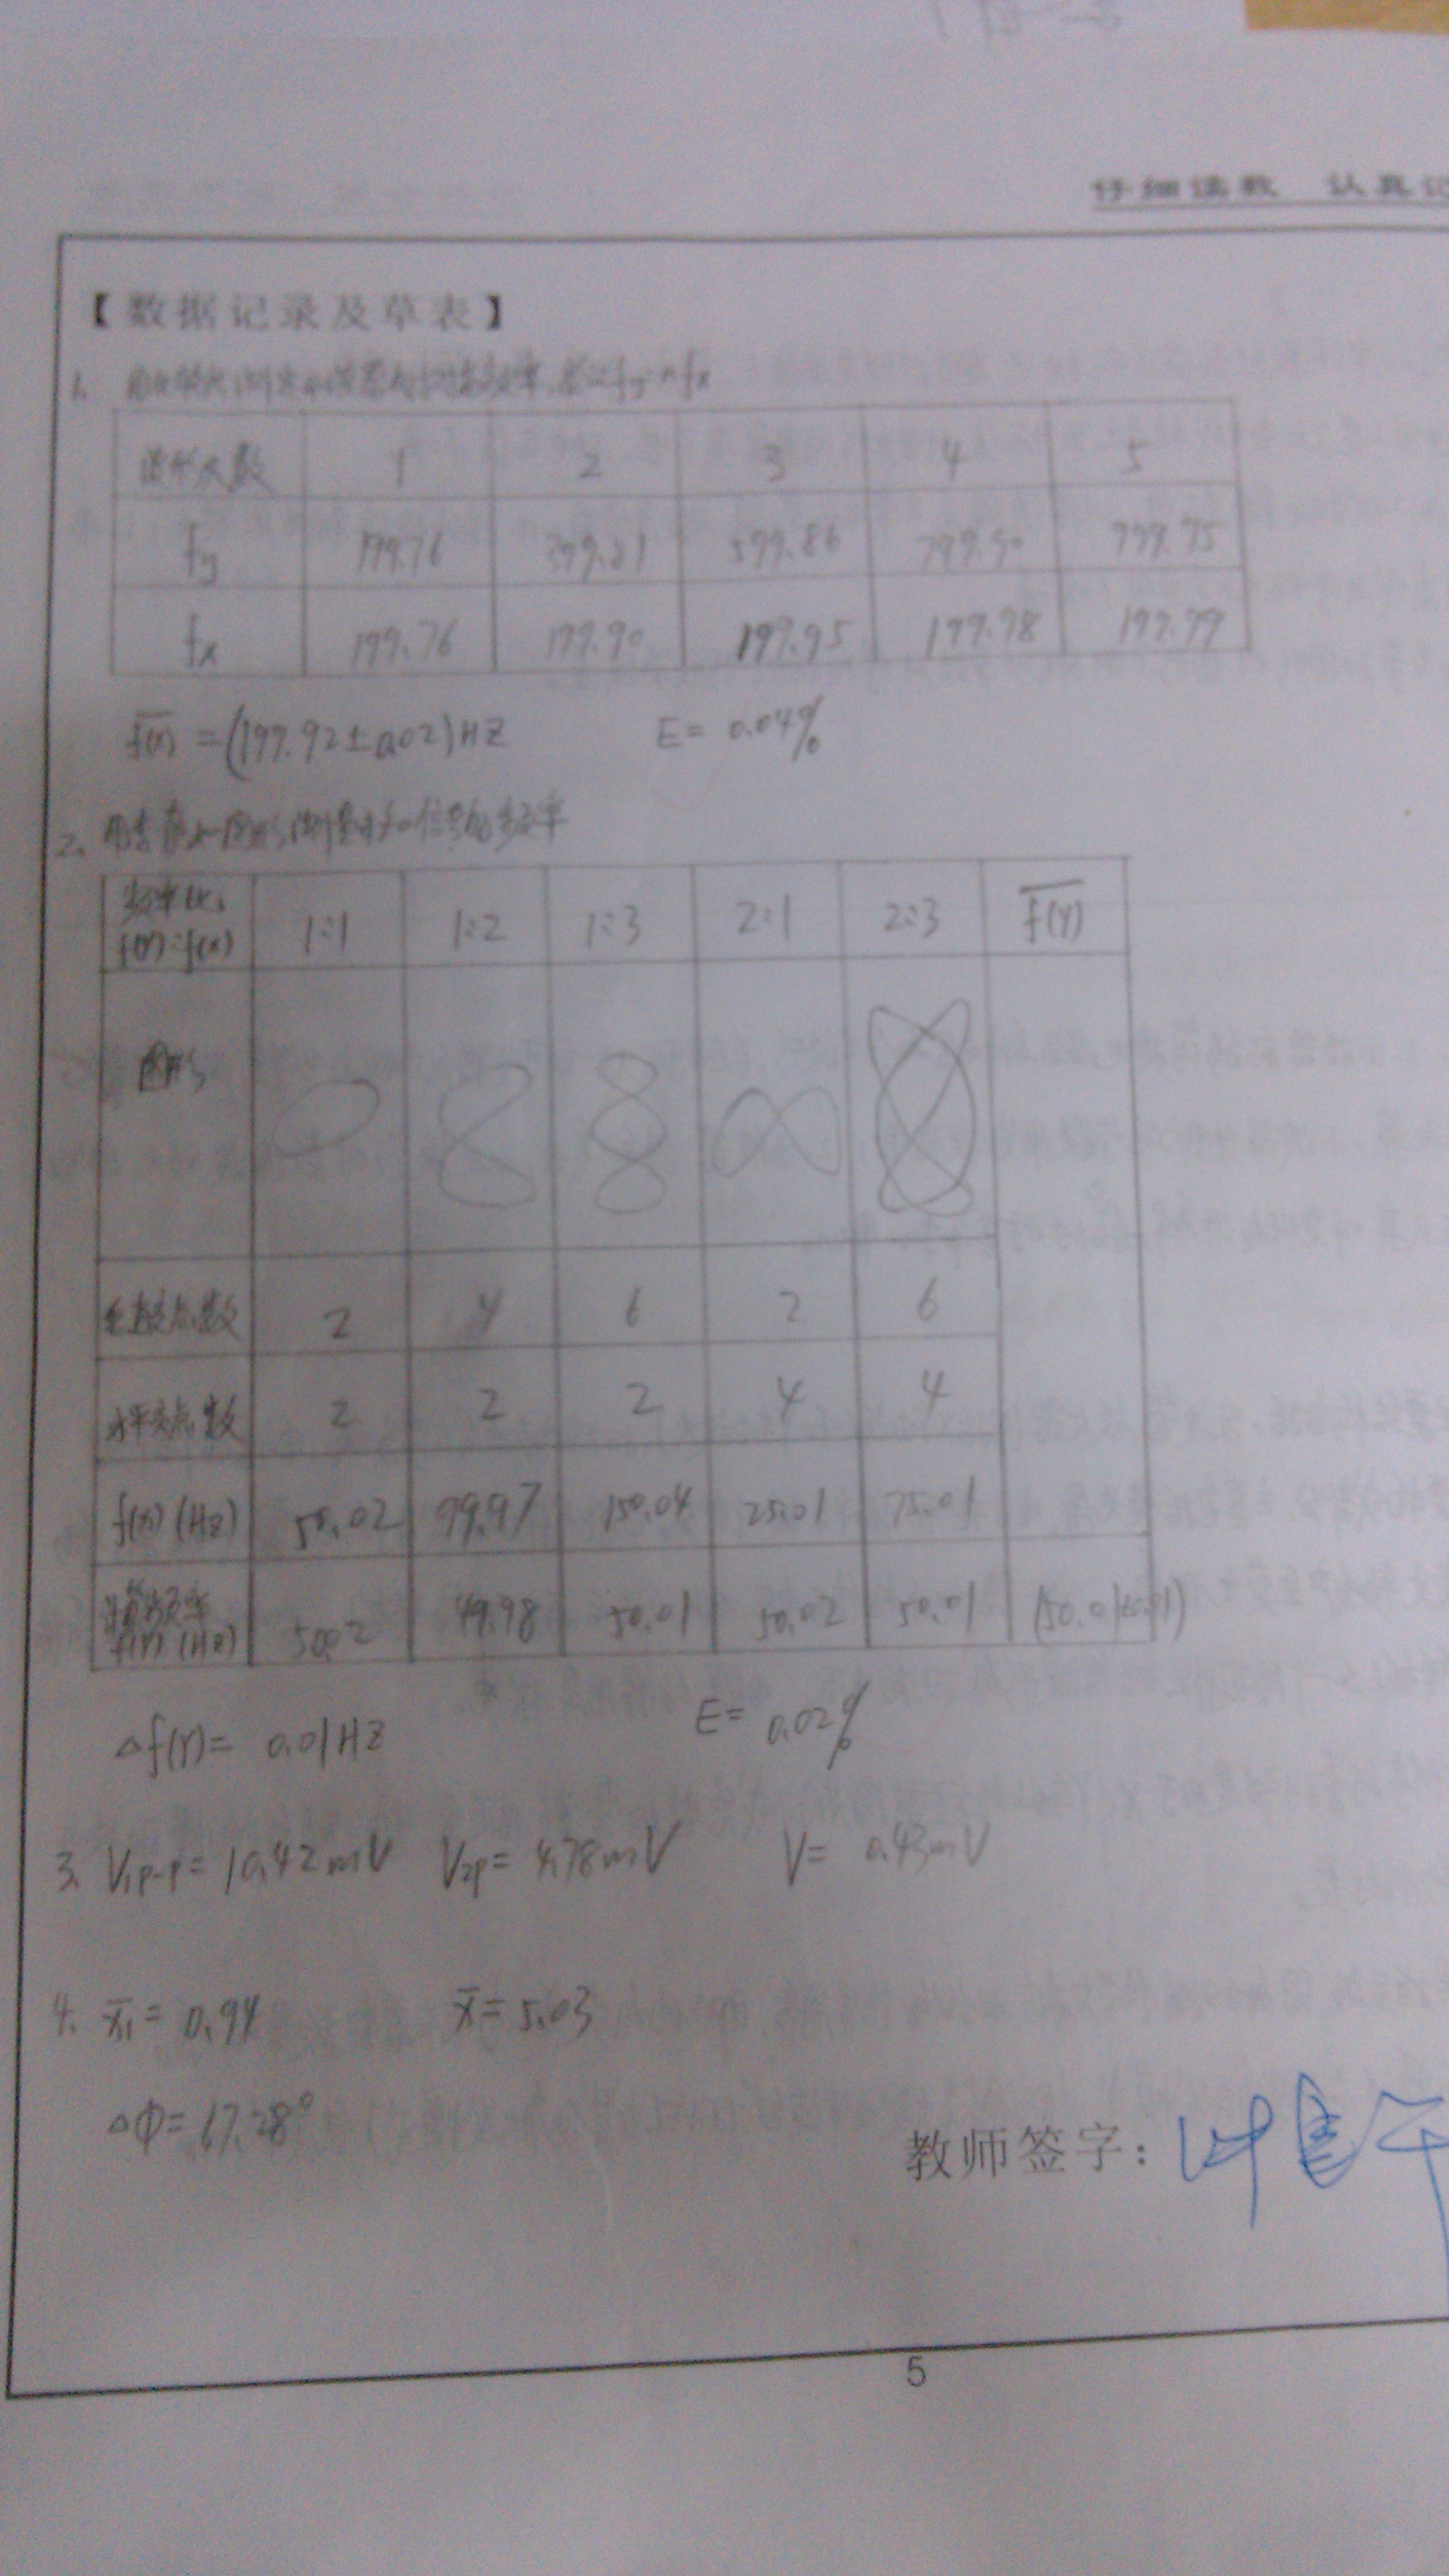 仔细读数 认真记
【数据记录及草表】
1.
波形次数 1 2 3 4 5
fy 199.76 399.81 599.86 799.90 999.95
fx 199.76 199.90 199.95 199.98 199.99
f(x) = (199.92±0.02)HZ E= 0.04%
2、用李萨如图形测量未知信号的频率
频率比
f(Y):f(x) 1:1 1:2 1:3 2:1 2:3 f(Y)
图形
垂直交点数 2 4 6 2 6
水平交点数 2 2 2 4 4
f(x)(Hz) 50.02 99.97 150.04 25.01 75.01
计算频率
f(Y)(Hz) 50.02 49.98 50.01 50.02 50.01 (50.01±0.01)
△f(Y)= 0.01HZ E= 0.02%
3. V1p-p= 10.42mV V2p= 4.78mV V= 0.43mV
4. = 0.94 x̄= 5.03
△Φ= 67.28°
教师签字:
5